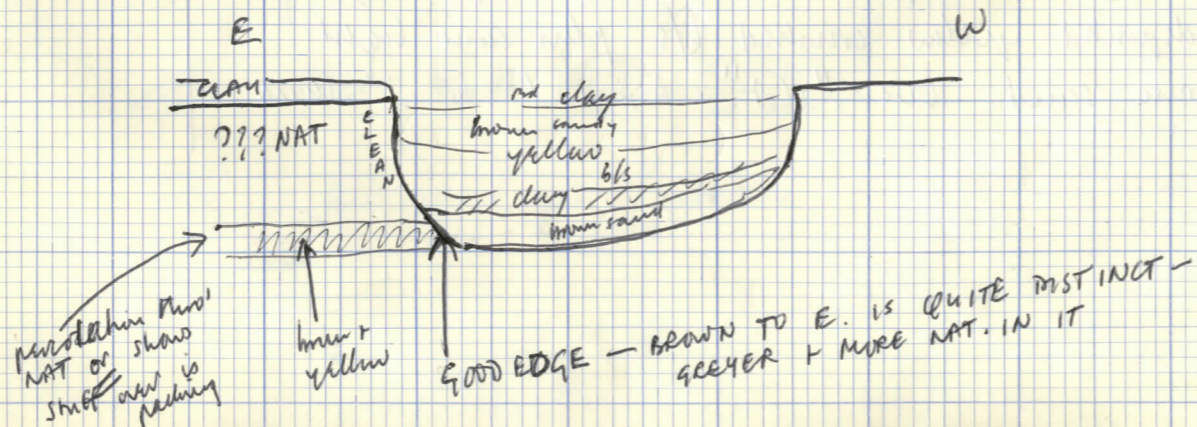 E
W
CLAY
red clay
??? NAT
CLEAN
brown sandy
yellow
b/s
clay
brown sand
percolation thro'
NAT or shows
stuff over is
packing
brown +
yellow
GOOD EDGE — BROWN TO E. IS QUITE DISTINCT —
GREYER + MORE NAT. IN IT